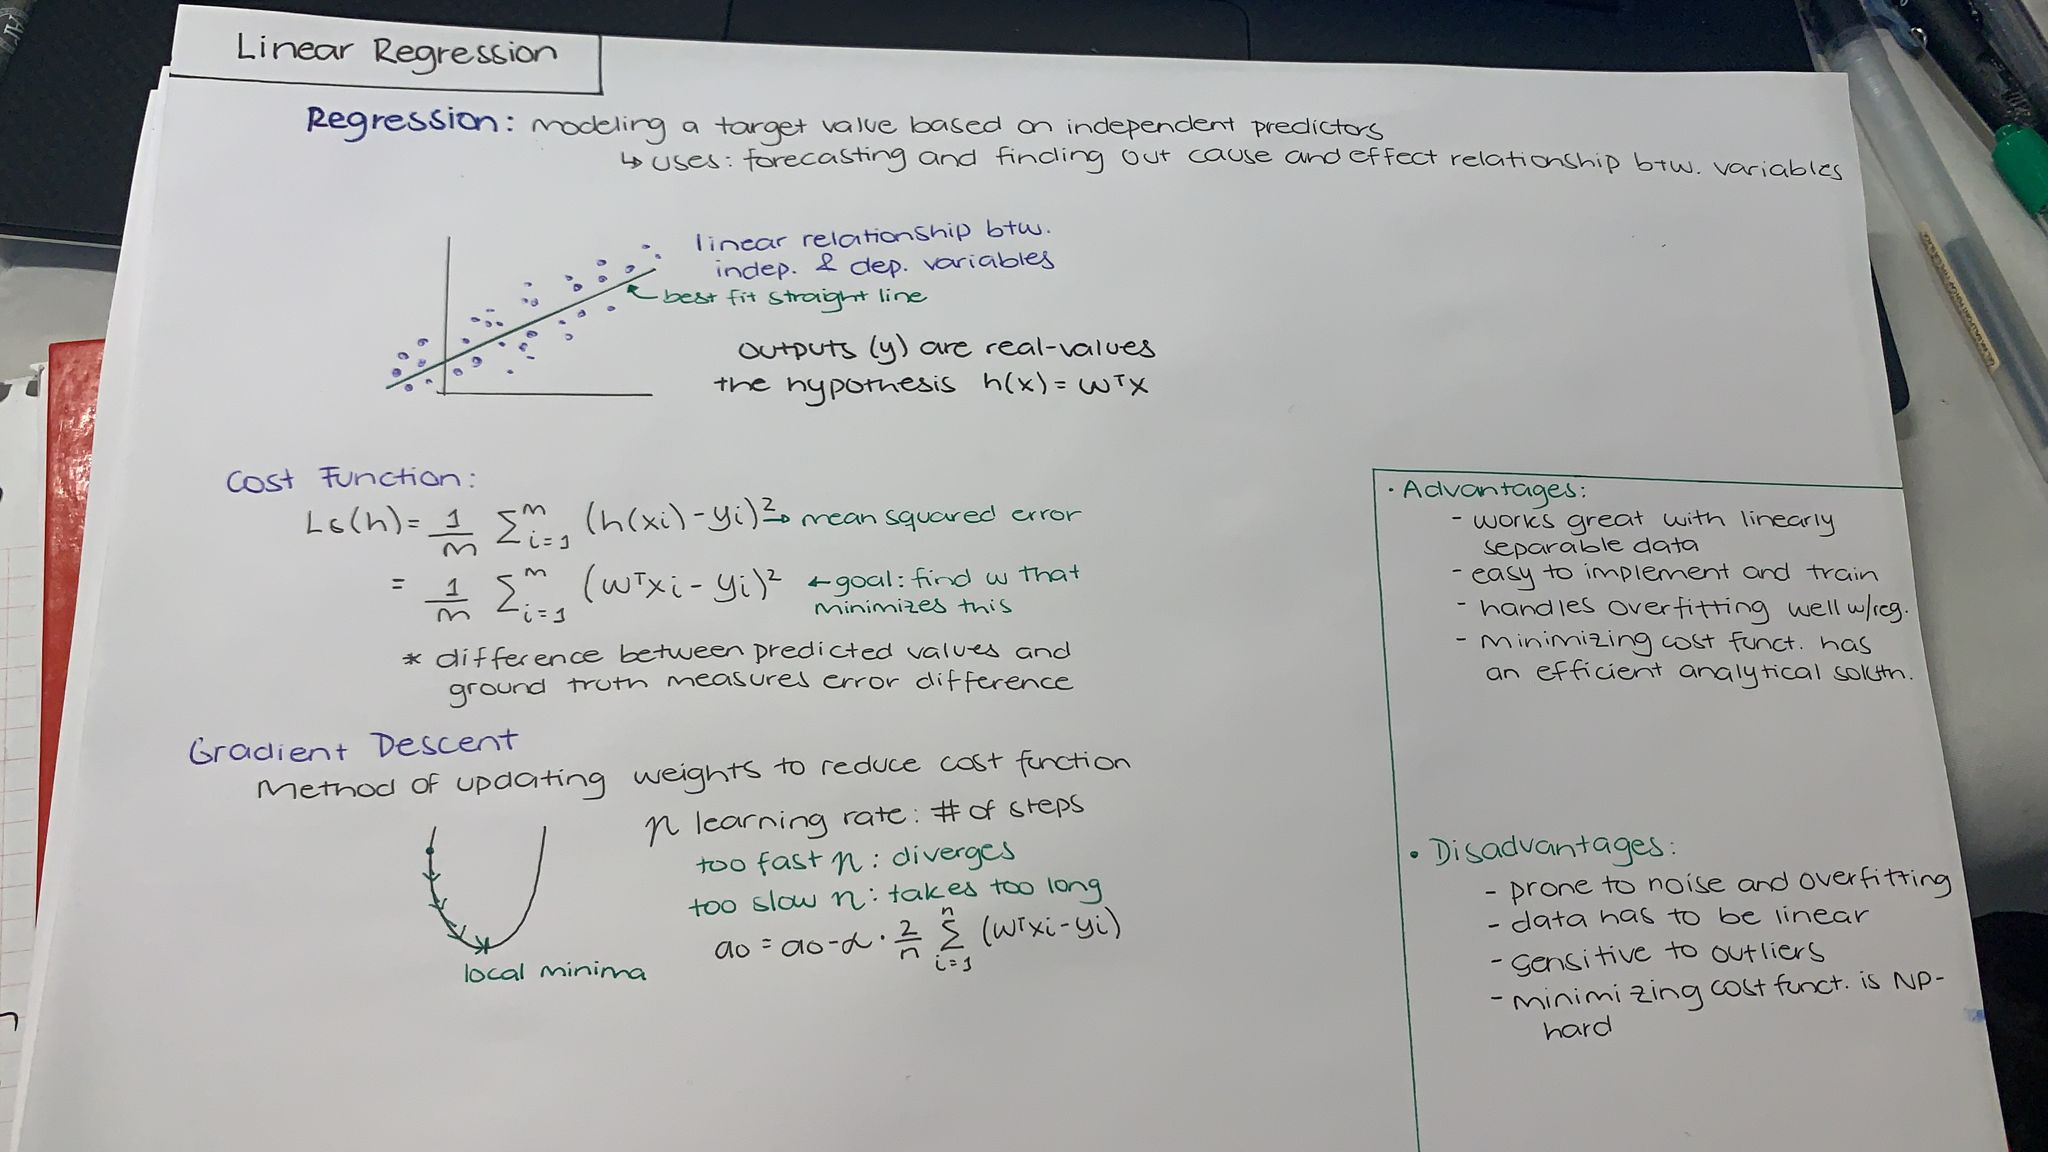 Linear Regression
Regression: modeling a target value based on independent predictors
↳ uses: forecasting and finding out cause and effect relationship btw. variables
linear relationship btw.
indep. & dep. variables
best fit straight line
outputs (y) are real-values
the hypothesis h(x) = wᵀx
Cost Function:
Ls(h) = 1/m Σᵐᵢ₌₁ (h(xi) - yi)² → mean squared error
= 1/m Σᵐᵢ₌₁ (wᵀxi - yi)² ← goal: find w that
minimizes this
* difference between predicted values and
ground truth measures error difference
Gradient Descent
Method of updating weights to reduce cost function
n learning rate: # of steps
too fast n: diverges
too slow n: takes too long
a0 = a0 - α · 2/n Σⁿᵢ₌₁ (wᵀxi - yi)
local minima
· Advantages:
- works great with linearly
separable data
- easy to implement and train
- handles overfitting well w/reg.
- minimizing cost funct. has
an efficient analytical solutn.
• Disadvantages:
- prone to noise and overfitting
- data has to be linear
- sensitive to outliers
- minimizing cost funct. is NP-
hard